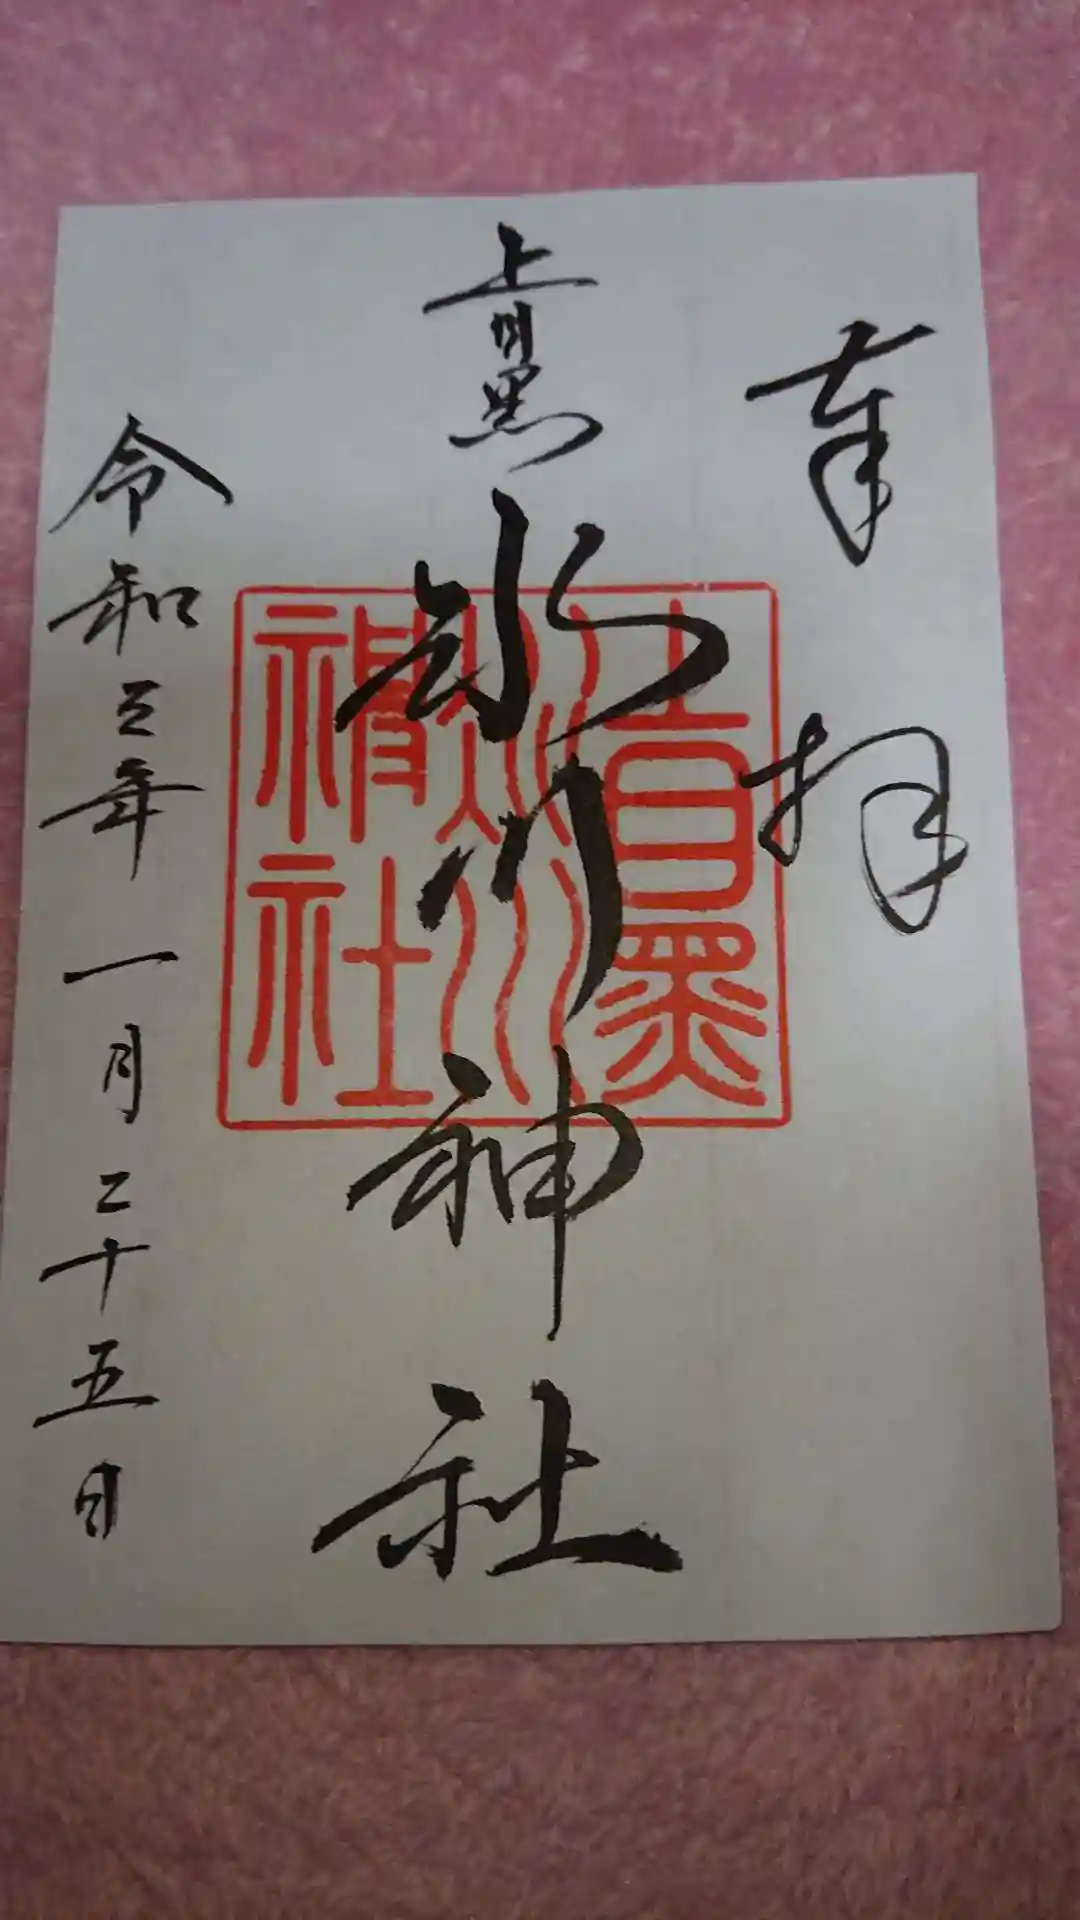 奉拝
上目黒
氷川神社
上目黒
氷川
神社
令和三年一月二十五日